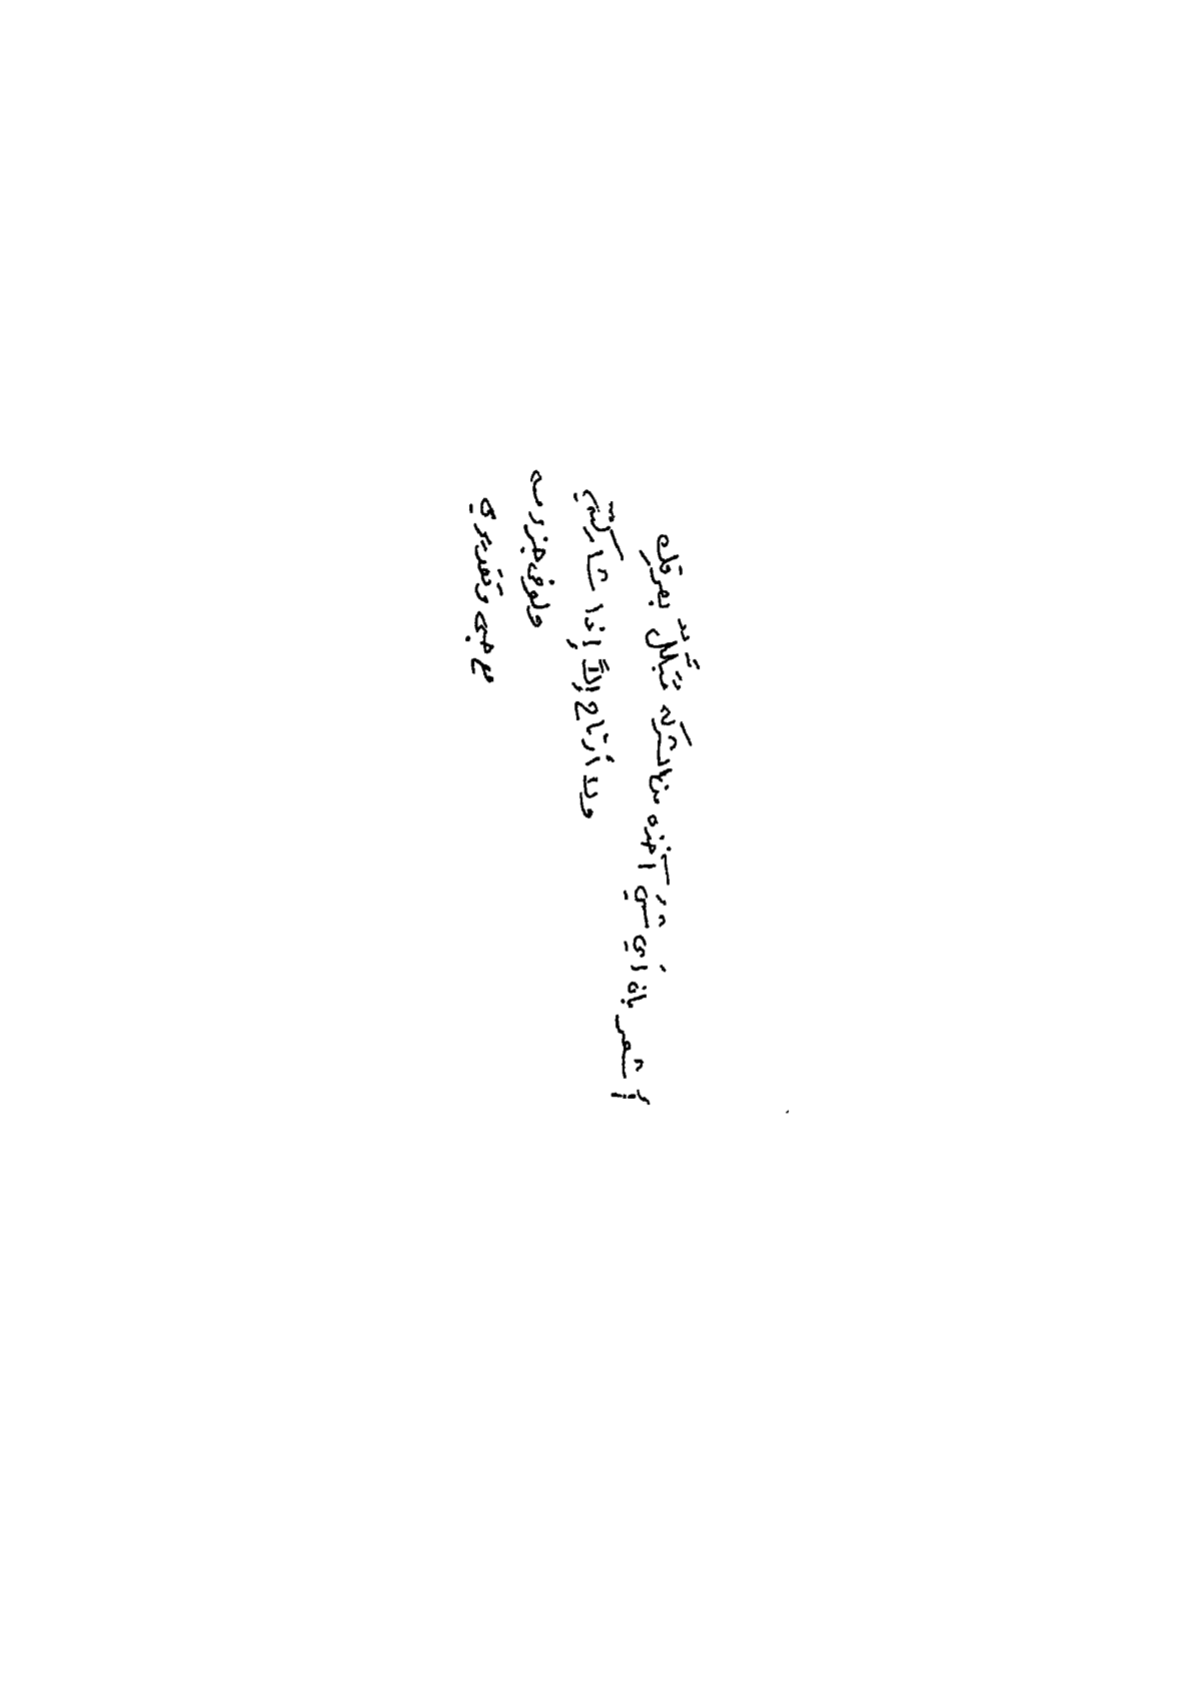 أشعر بان أي شيءٍ آخذه من الشركة مُبَلَّلٌ بعرقكِ
ولا أرتاح إلاَّ إذا شاركتِني
ولو في جزء منه
مع حبي وتقديري